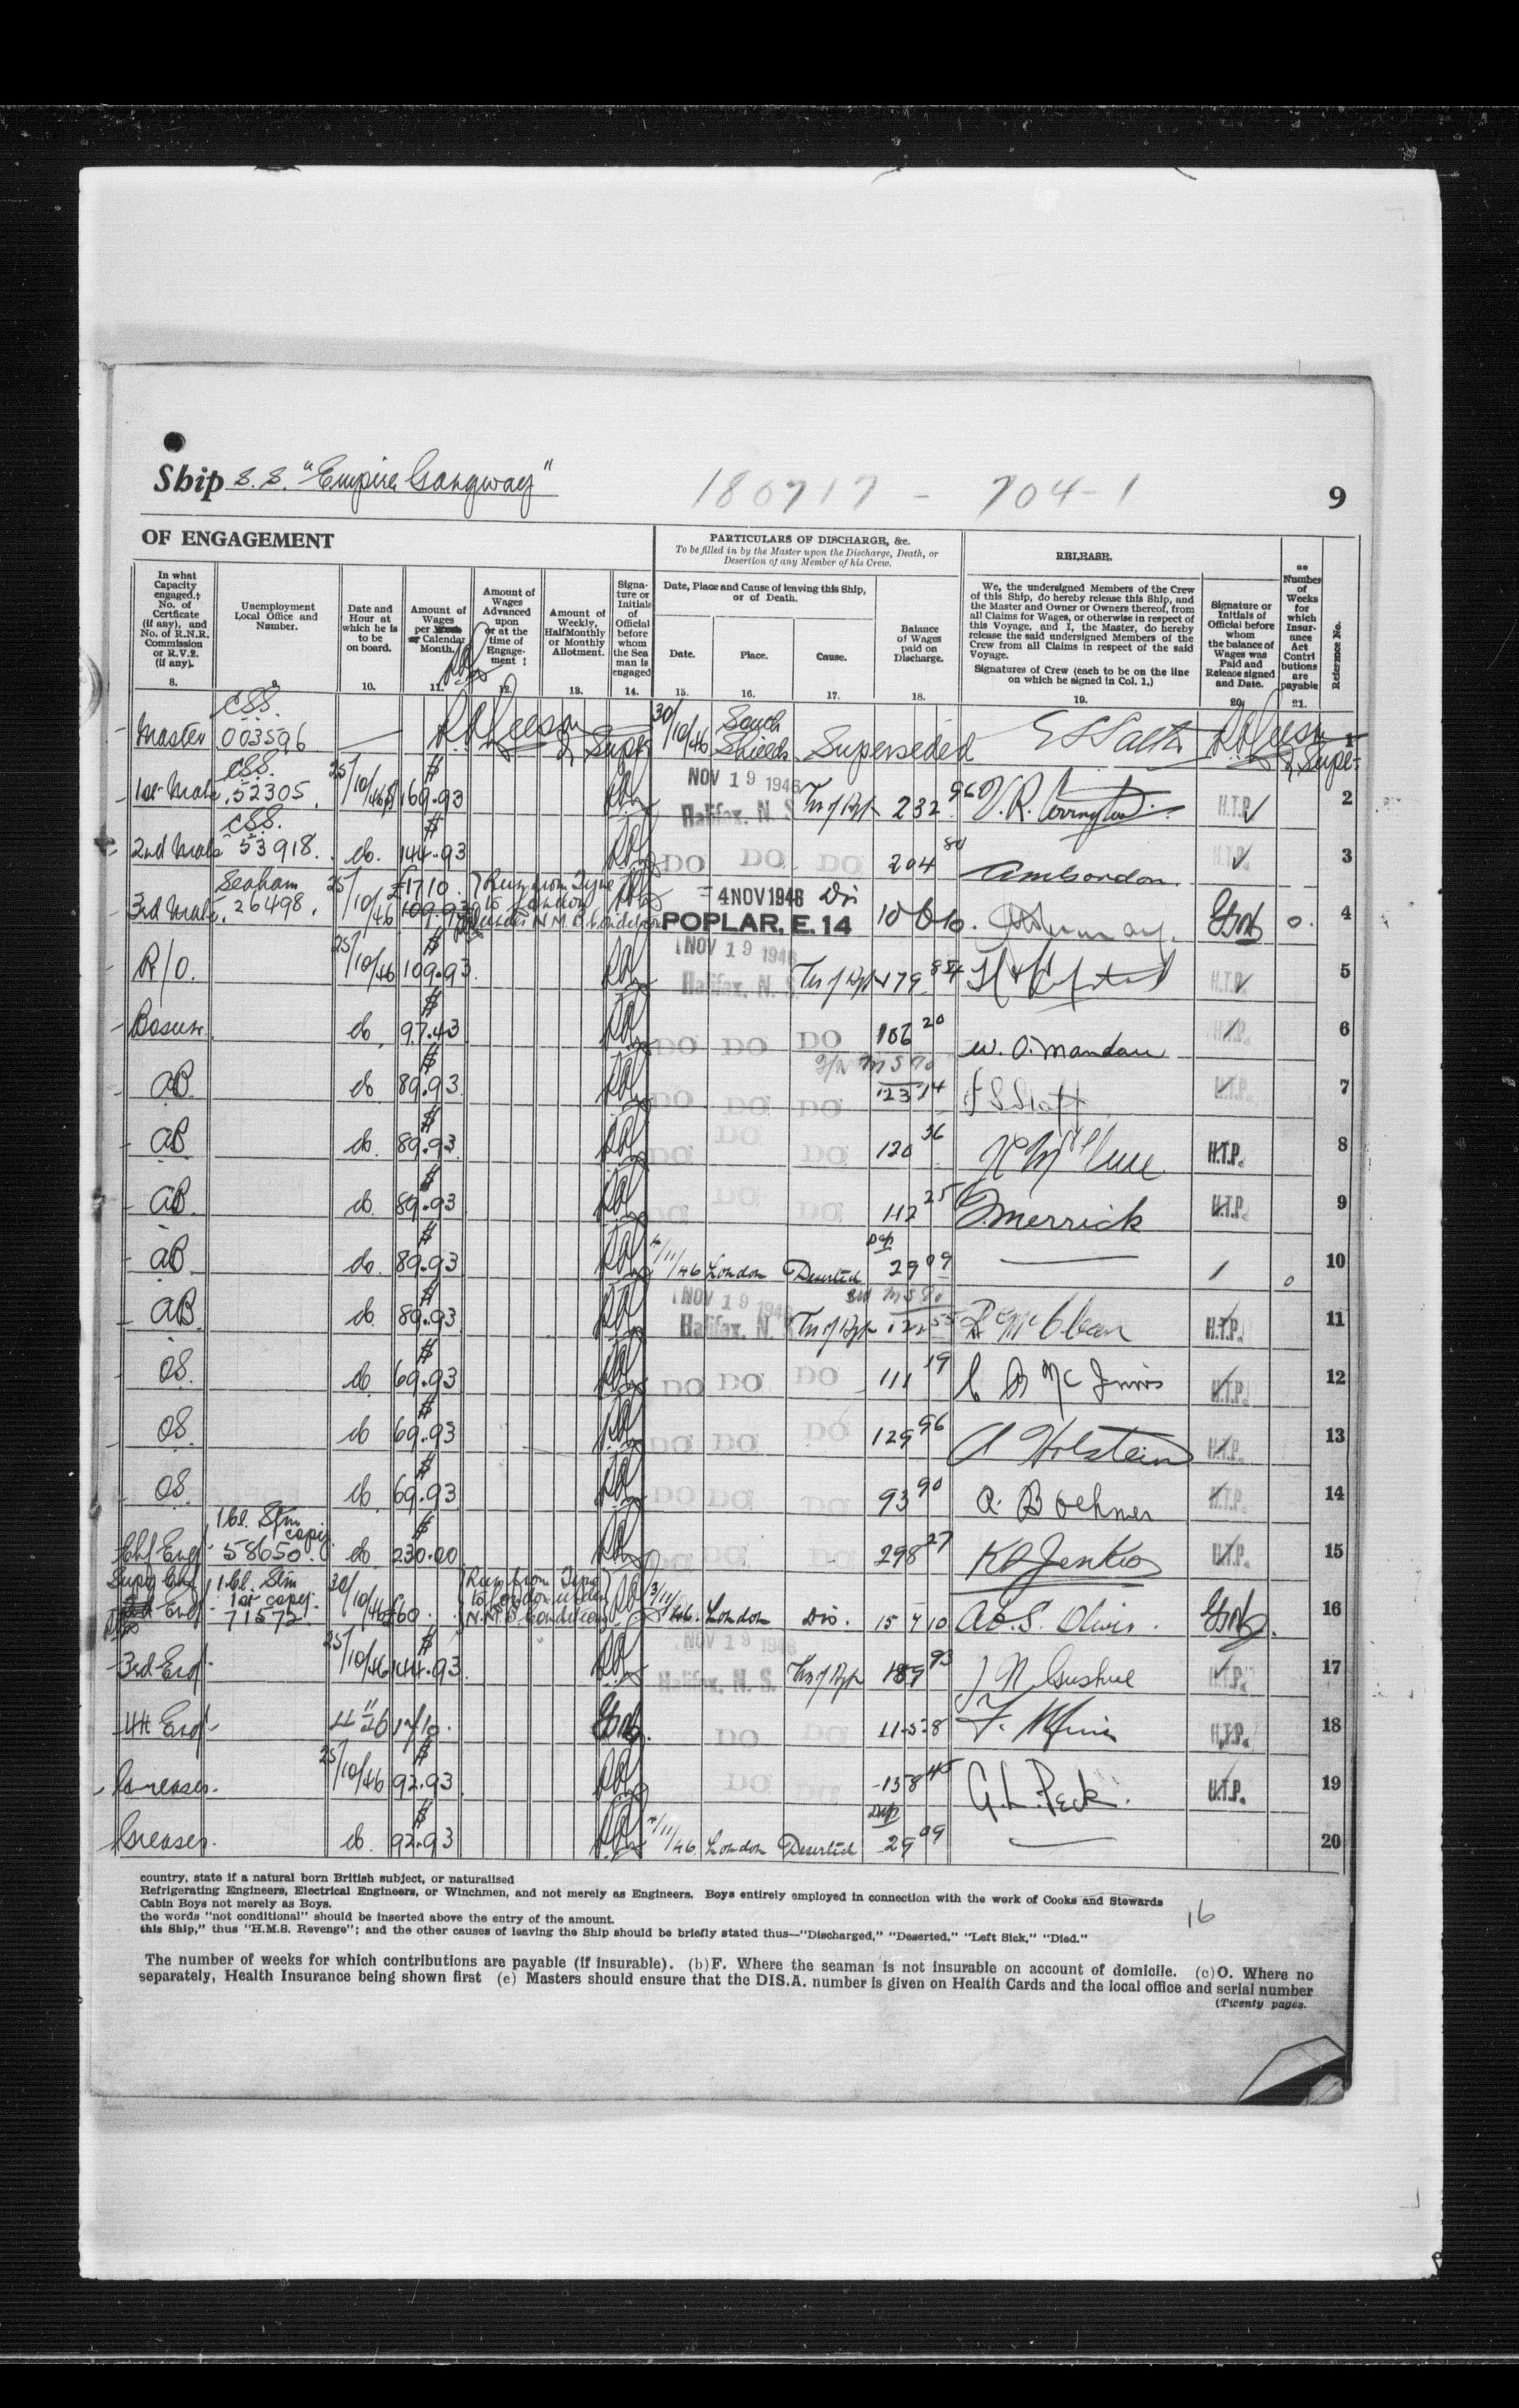 Ship S.S. "Empire Gangway"
180717 - 704-1
9
OF ENGAGEMENT
PARTICULARS OF DISCHARGE, &c.
To be filled in by the Master upon the Discharge, Death, or Desertion of any Member of his Crew.
RELEASE.
In what Capacity engaged.† No. of Certficate (if any), and No. of R.N.R. Commission or R.V.2. (if any).
8.
Unemployment Local Office and Number.
9.
Date and Hour at which he is to be on board.
10.
Amount of Wages per Week or Calendar Month.
11.
Amount of Wages Advanced upon or at the time of Engagement ‡
12.
Amount of Weekly, HalfMonthly or Monthly Allotment.
13.
Signature or Initials of Official before whom the Seaman is engaged
14.
Date, Place and Cause of leaving this Ship, or of Death.
Date.
15.
Place.
16.
Cause.
17.
Balance of Wages paid on Discharge.
18.
We, the undersigned Members of the Crew of this Ship, do hereby release this Ship, and the Master and Owner or Owners thereof, from all Claims for Wages, or otherwise in respect of this Voyage, and I, the Master, do hereby release the said undersigned Members of the Crew from all Claims in respect of the said Voyage.
Signatures of Crew (each to be on the line on which he signed in Col. 1,)
19.
Signature or Initials of Official before whom the balance of Wages was Paid and Release signed and Date.
20.
** Number of Weeks for which Insurance Act Contributions are payable
21.
Reference No.
Master CSS. 003596 30/10/46 South Shields Superseded 1
1st Mate CSS. 52305. 25/10/46 $ 169.93 NOV 19 1946 Halifax, N. S. 232 96 H.T.P. 2
2nd Mate CSS. 53918. do. $ 144.93 DO DO DO 204 H.T.P. 3
3rd Mate. Seaham 26498. 25/10/46 £17 10. 109.93 Run from Tyne to London under N.M.B. Conditions 4 NOV 1946 Dis POPLAR, E. 14 10 6 10. 0. 4
R/O. 25/10/46 $ 109.93. NOV 19 1946 Halifax, N. S. 179 H.T.P. 5
Bosun. do. $ 97.43 DO DO DO 106 20 6
AB. do. $ 89.93. DO DO DO 123 14 H.T.P. 7
AB do. $ 89.93. DO DO DO 120 36 H.T.P. 8
AB. do. $ 89.93 DO DO DO 112 25 Merrick H.T.P. 9
AB do. $ 89.93 /11/46 London Deserted 29 09 0 10
AB. do. $ 89.93 NOV 19 1946 Halifax, N. 55 H.T.P. 11
OS. do. $ 69.93 DO DO DO 111 19 C McInnis H.T.P. 12
OS. do $ 69.93 DO DO DO 129 96 A Holstein H.T.P. 13
OS. do. $ 69.93 DO DO DO 93 90 A. Boehner H.T.P. 14
Chf Engr 1 Cl. Stm copy. 58650. do $ 230.00 DO DO 298 27 Jenkins H.T.P. 15
Supy Chf Engr 1 Cl. Stm 1st copy. 71572. 30/10/46 £60. Run from Tyne to London under N.M.B. Conditions 3/11/46. London Dis. 15 7 10 A.O.S. Oliver. 16
3rd Engr 25/10/46 $ 144.93. NOV 19 1946 Halifax, N. S. 189 93 J N Gushue H.T.P. 17
4th Engr 17/10. DO DO 11-5-8 H.T.P. 18
Greaser. 25/10/46 $ 92.93 DO DO 158 45 G.L. Peck. H.T.P. 19
Greaser. do. $ 92.93 /11/46 London Deserted 29 09 20
country, state if a natural born British subject, or naturalised
Refrigerating Engineers, Electrical Engineers, or Winchmen, and not merely as Engineers. Boys entirely employed in connection with the work of Cooks and Stewards
Cabin Boys not merely as Boys.
the words "not conditional" should be inserted above the entry of the amount.
this Ship," thus "H.M.S. Revenge"; and the other causes of leaving the Ship should be briefly stated thus—"Discharged," "Deserted," "Left Sick," "Died."
16
The number of weeks for which contributions are payable (if insurable). (b)F. Where the seaman is not insurable on account of domicile. (c)O. Where no
separately, Health Insurance being shown first (e) Masters should ensure that the DIS.A. number is given on Health Cards and the local office and serial number
(Twenty pages.